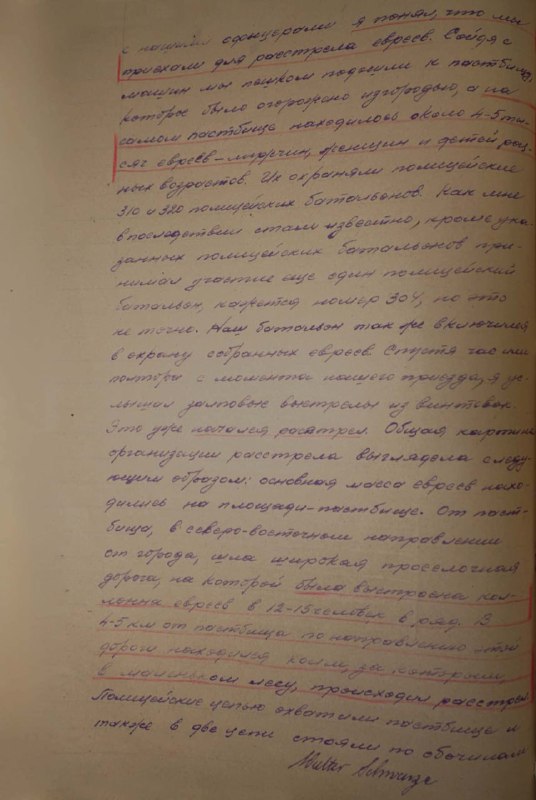 с нашими офицерами я понял, что мы
приехали для расстрела евреев. Сойдя с
машин мы пешком подошли к пастбищу,
которое было огорожено изгородью, а на
самом пастбище находилось около 4-5 ты-
сяч евреев – мужчин, женщин и детей раз-
ных возрастов. Их охраняли полицейские
310 и 320 полицейских батальонов. Как мне
впоследствии стало известно, кроме ука-
занных полицейских батальонов при-
нимал участие еще один полицейский
батальон, кажется номер 304, но это
не точно. Наш батальон так же включился
в охрану собранных евреев. Спустя час или
полтора с момента нашего приезда, я ус-
лышал залповые выстрелы из винтовок.
Это уже начался расстрел. Общая картина
организации расстрела выглядела следу-
ющим образом: основная масса евреев нахо-
дились на площади-пастбище. От паст-
бища, в северо-восточном направлении
от города, шла широкая проселочная
дорога, на которой была выстроена кол-
лонна евреев в 12-15 человек в ряд. В
4-5 км от пастбища по направлению этой
дороги находился холм, за которым,
в маленьком лесу, происходил расстрел.
Полицейские цепью охватили пастбище и
также в две цепи стояли по обочинам
Walter Schwarze